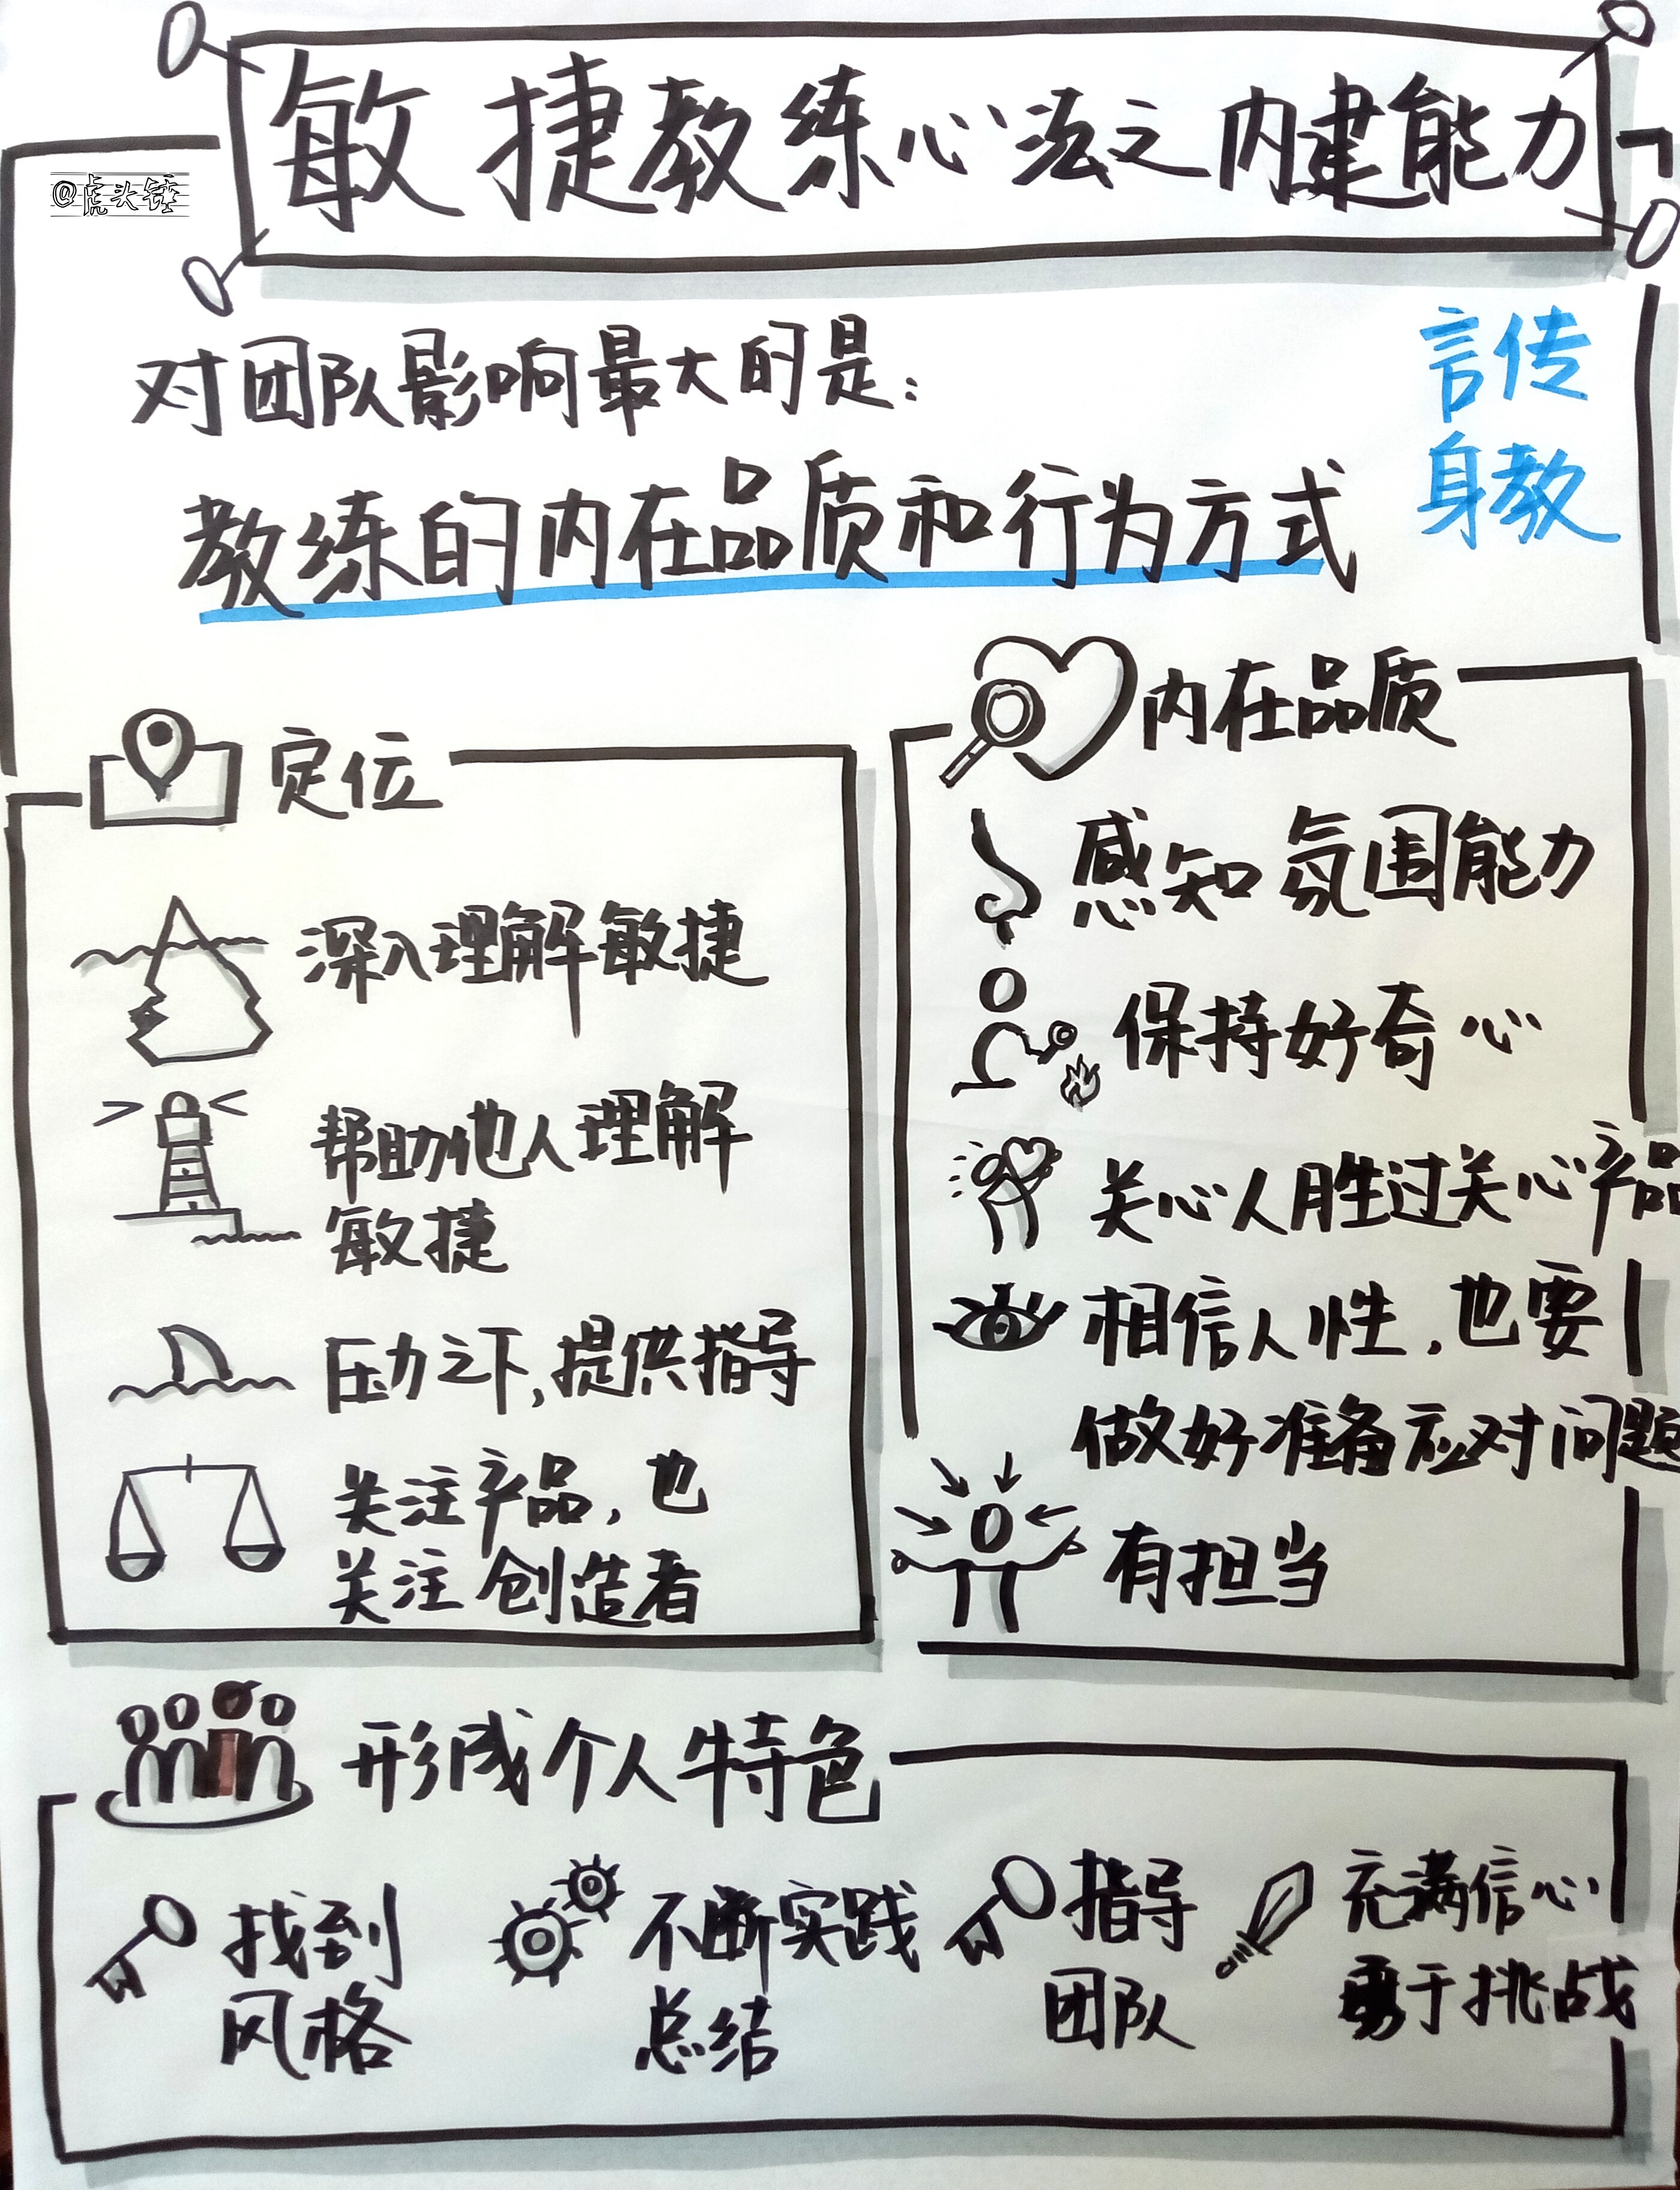 敏捷教练心法之内建能力
@虎头锤
对团队影响最大的是：
言传
身教
教练的内在品质和行为方式
定位
深入理解敏捷
帮助他人理解
敏捷
压力之下，提供指导
关注产品，也
关注创造者
内在品质
感知氛围能力
保持好奇心
关心人胜过关心产品
相信人性，也要
做好准备应对问题
有担当
形成个人特色
找到
风格
不断实践
总结
指导
团队
充满信心
勇于挑战